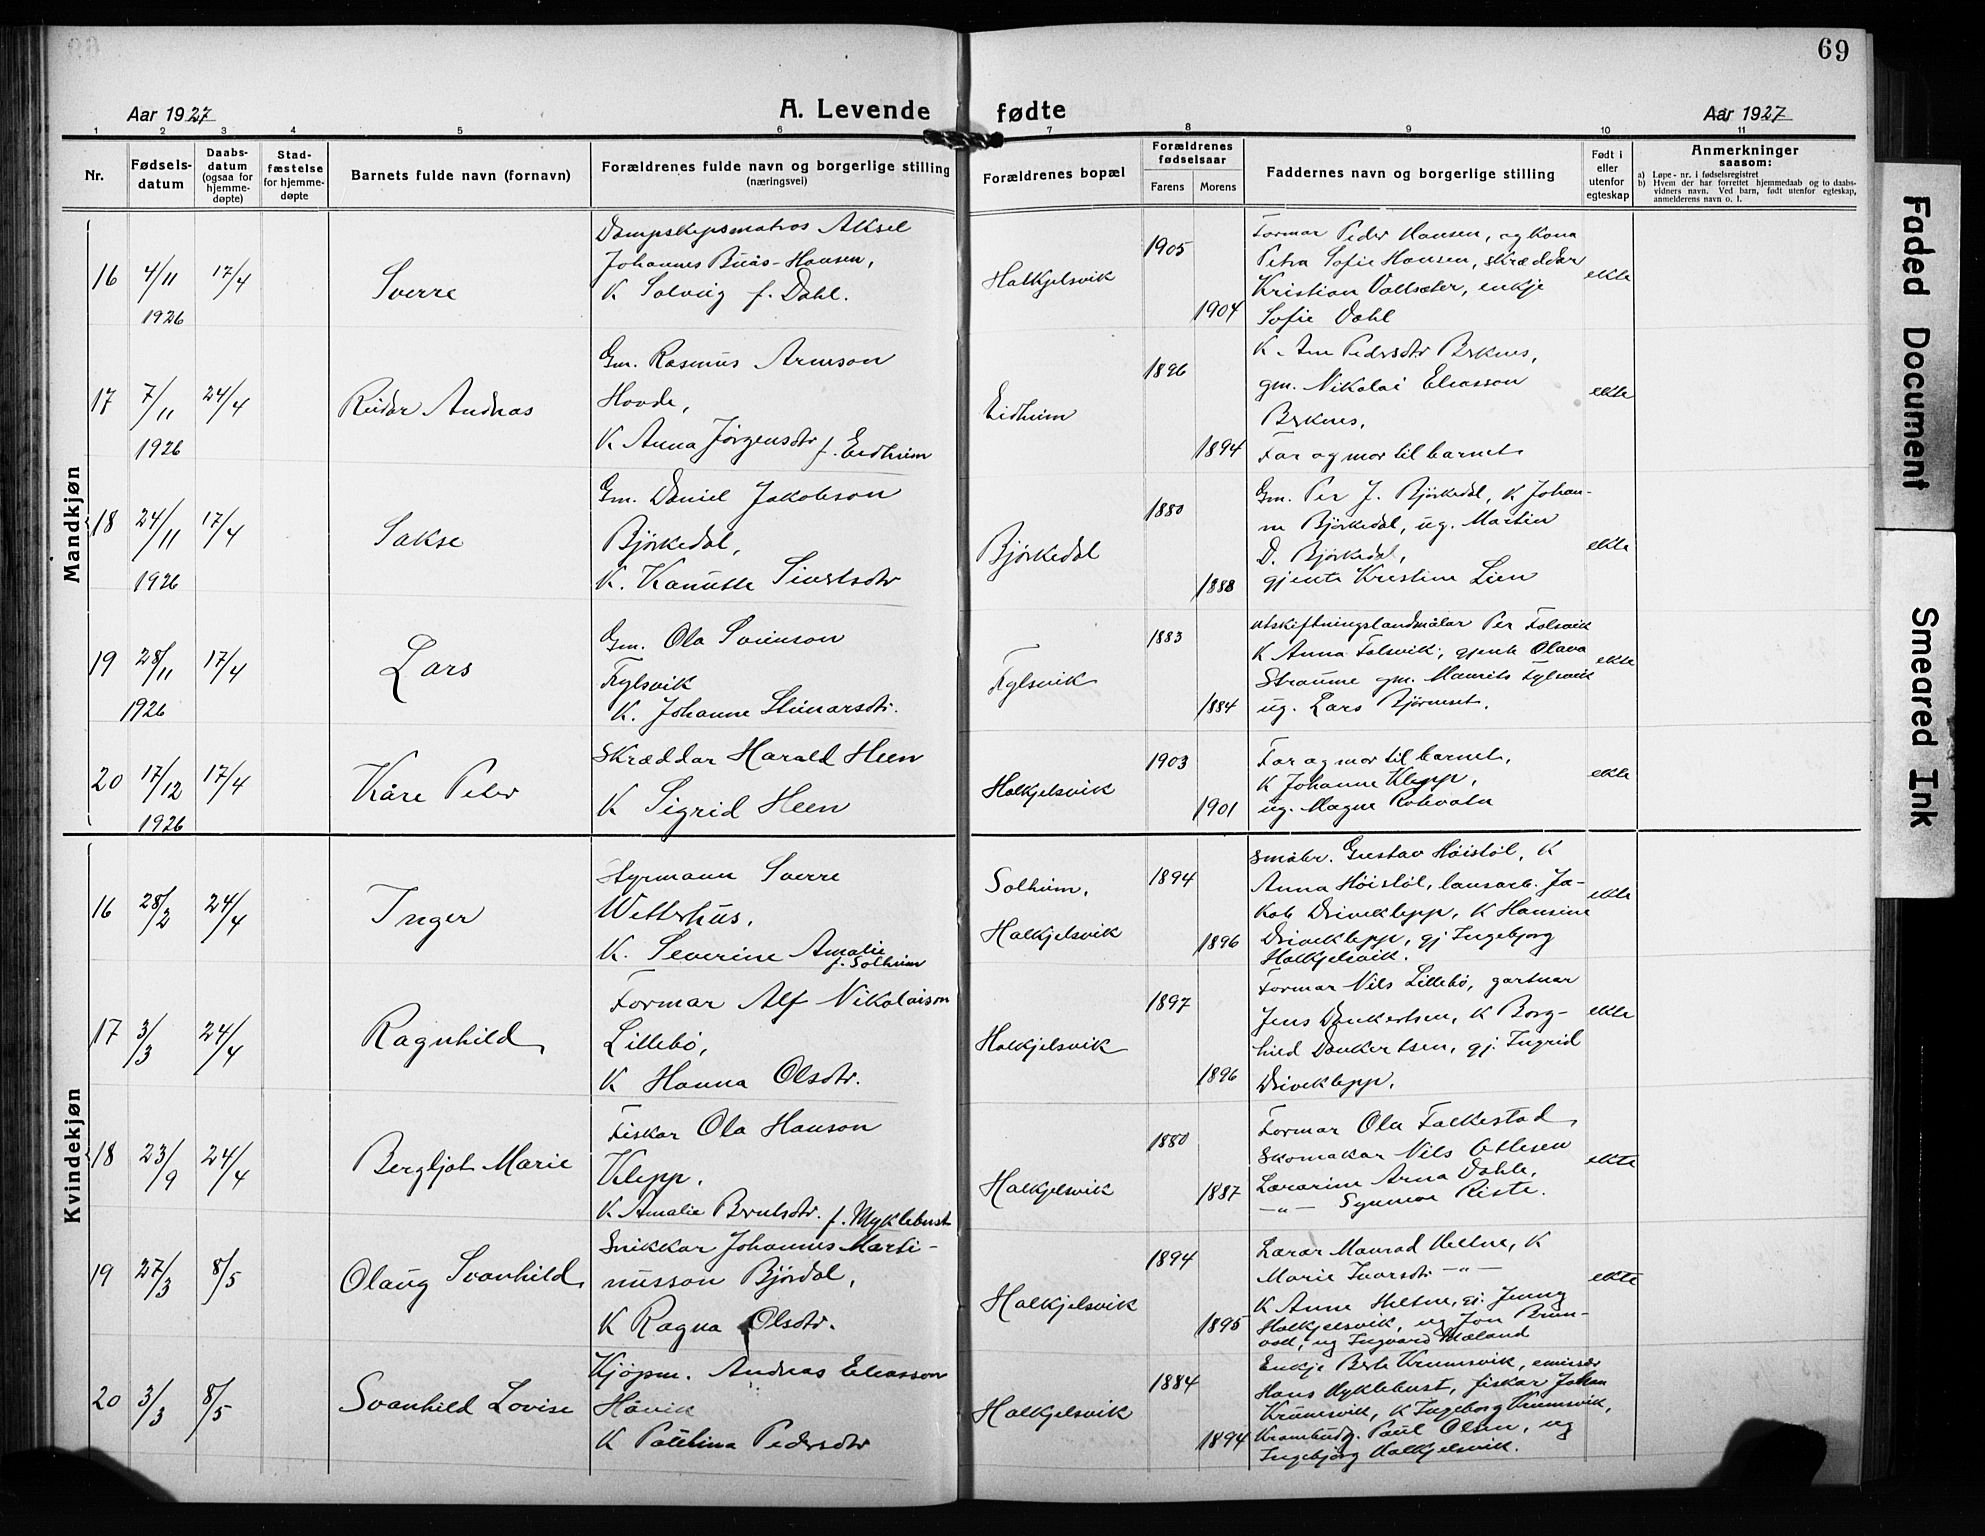 69
Aar 1927
A. Levende fødte
Aar 1927
1 2 3 4 5 6 7 8 9 10 11
Nr.
Fødsels-
datum
Daabs-
datum
(ogsaa for
hjemme-
døpte)
Stad-
fæstelse
for hjemme-
døpte
Barnets fulde navn (fornavn)
Forældrenes fulde navn og borgerlige stilling
(næringsvei)
Forældrenes bopæl
Forældrenes
fødselsaar
Farens
Morens
Faddernes navn og borgerlige stilling
Født i
eller
utenfor
egteskap
Anmerkninger
saasom:
a) Løpe-nr. i fødselsregistret
b) Hvem der har forrettet hjemmedaab og to daabs-
vidners navn. Ved barn, født utenfor egteskap,
anmelderens navn o. l.
Mandkjøn
16 4/11 1926 17/4
Sverre
Dampskipsmatros Aksel
Johannes Buås-Hansen,
K. Solveig f. Dahl.
Halkjelsvik
1905
1904
Formar Peder Hansen, og kona
Petra Sofie Hansen, skræddar
Kristian Vallsæter, enkje
Sofie Dahl
ekte
17 7/11 1926 24/4
Reidar Andreas
Gm. Rasmus Arneson
Hovde,
K Anna Jørgensdtr f. Eidheim
Eidheim
1896
1894
K. Ane Pedersdtr Berknes,
gm. Nikolai Eleasson
Berknes,
Far og mor til barnet
ekte
18 24/11 1926 17/4
Sakse
Gm. Daniel Jakobson
Bjørkedal,
K. Kanutte Sivertsdtr
Bjørkedal
1880
1888
Gm. Per J. Bjørkedal, K Johan-
ne Bjørkedal, ug. Martin
D. Bjørkedal,
gjenta Kristine Lien
ekte
19 28/11 1926 17/4
Lars
Gm. Ola Sveinson
Fylsvik
K. Johanne Steinarsdtr.
Fylsvik
1883
1884
utskiftningslandmålar Per Folsvik
K Anna Folsvik, gjenta Olava
Straume gm. Maurits Fylsvik
ug. Lars Bjørneset.
ekte
20 17/12 1926 17/4
Kåre Peter
Skræddar Harald Heen
K Sigrid Heen
Halkjelsvik
1903
1901
Far og mor til barnet,
K Johanne Klepp,
ug. Magne Rotevatn
ekte
Kvindekjøn
16 28/2 24/4
Inger
Styrmann Sverre
Wetterhus,
K. Severine Amalie
f. Solheim
Solheim,
Halkjelsvik
1894
1896
småbr. Gustav Høistøl, K
Anna Høistøl, lausarb. Ja-
kob Driveklepp, K Hansine
Driveklepp, gj Ingebjorg
Halkjelsvik.
ekte
17 3/3 24/4
Ragnhild
Formar Alf Nikolaison
Lillebø,
K Hanna Olsdtr.
Halkjelsvik
1897
1896
Formar Nils Lillebø, gartnar
Jens Dankertsen, K Borg-
hild Dankertsen, gj. Ingrid
Driveklepp.
ekte
18 23/9 24/4
Bergljot Marie
Fiskar Ola Hanson
Klepp,
K Amalie Berntsdtr. f. Myklebust
Halkjelsvik
1880
1887
Formar Ola Falkestad
Skomakar Nils Ottesen
Lærarine Arna Dahle,
—"— Synnøve Riste.
ekte
19 27/3 8/5
Olaug Svanhild
Snikkar Johannes Marti-
nusson Bjørdal,
K Ragna Olsdtr.
Halkjelsvik
1894
1895
Lærar Monrad Heltne, K
Marie Ivarsdtr —"—
K Anne Heltne, gj. Jenny
Halkjelsvik, ug Jon Brun-
voll, ug Ingvard Mæland
ekte
20 3/3 8/5
Svanhild Lovise
Kjøpm. Andreas Eleasson
Håvik
K Paulina Pedersdtr
Halkjelsvik
1884
1894
Enkje Berte Krumsvik, emissær
Hans Myklebust, fiskar Johan
Krumsvik, K Ingeborg Krumsvik,
Krambudg. Paul Olsen, ug
Ingebjørg Halkjelsvik.
Faded Document
Smeared Ink